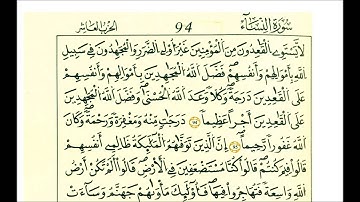 سُورَةُ النِّسَاءِ 94 الحِزْبُ العَاشِرُ
لَّا يَسْتَوِے اِ۬لْقَٰعِدُونَ مِنَ اَ۬لْمُؤْمِنِينَ غَيْرَ أُوْلِے اِ۬لضَّرَرِ وَالْمُجَٰهِدُونَ فِے سَبِيلِ
اِ۬للَّهِ بِأَمْوَٰلِهِمْ وَأَنفُسِهِمْ فَضَّلَ اَ۬للَّهُ اُ۬لْمُجَٰهِدِينَ بِأَمْوَٰلِهِمْ وَأَنفُسِهِمْ
عَلَى اَ۬لْقَٰعِدِينَ دَرَجَةً وَكُلًّا وَعَدَ اَ۬للَّهُ اُ۬لْحُسْنَىٰ وَفَضَّلَ اَ۬للَّهُ اُ۬لْمُجَٰهِدِينَ
عَلَى اَ۬لْقَٰعِدِينَ أَجْراً عَظِيماً دَرَجَٰتٍ مِّنْهُ وَمَغْفِرَةً وَرَحْمَةً وَكَانَ
اَ۬للَّهُ غَفُوراً رَّحِيماً إِنَّ اَ۬لذِينَ تَوَفَّىٰهُمُ اُ۬لْمَلَٰٓئِكَةُ ظَالِمِے أَنفُسِهِمْ
قَالُواْ فِيمَ كُنتُمْ قَالُواْ كُنَّا مُسْتَضْعَفِينَ فِے اِ۬لَارْضِ قَالُوٓاْ أَلَمْ تَكُنَ اَرْضُ
اُ۬للَّهِ وَٰسِعَةً فَتُهَاجِرُواْ فِيهَا فَأُوْلَٰٓئِكَ مَأْوَىٰهُمْ جَهَنَّمُ وَسَآءَتْ